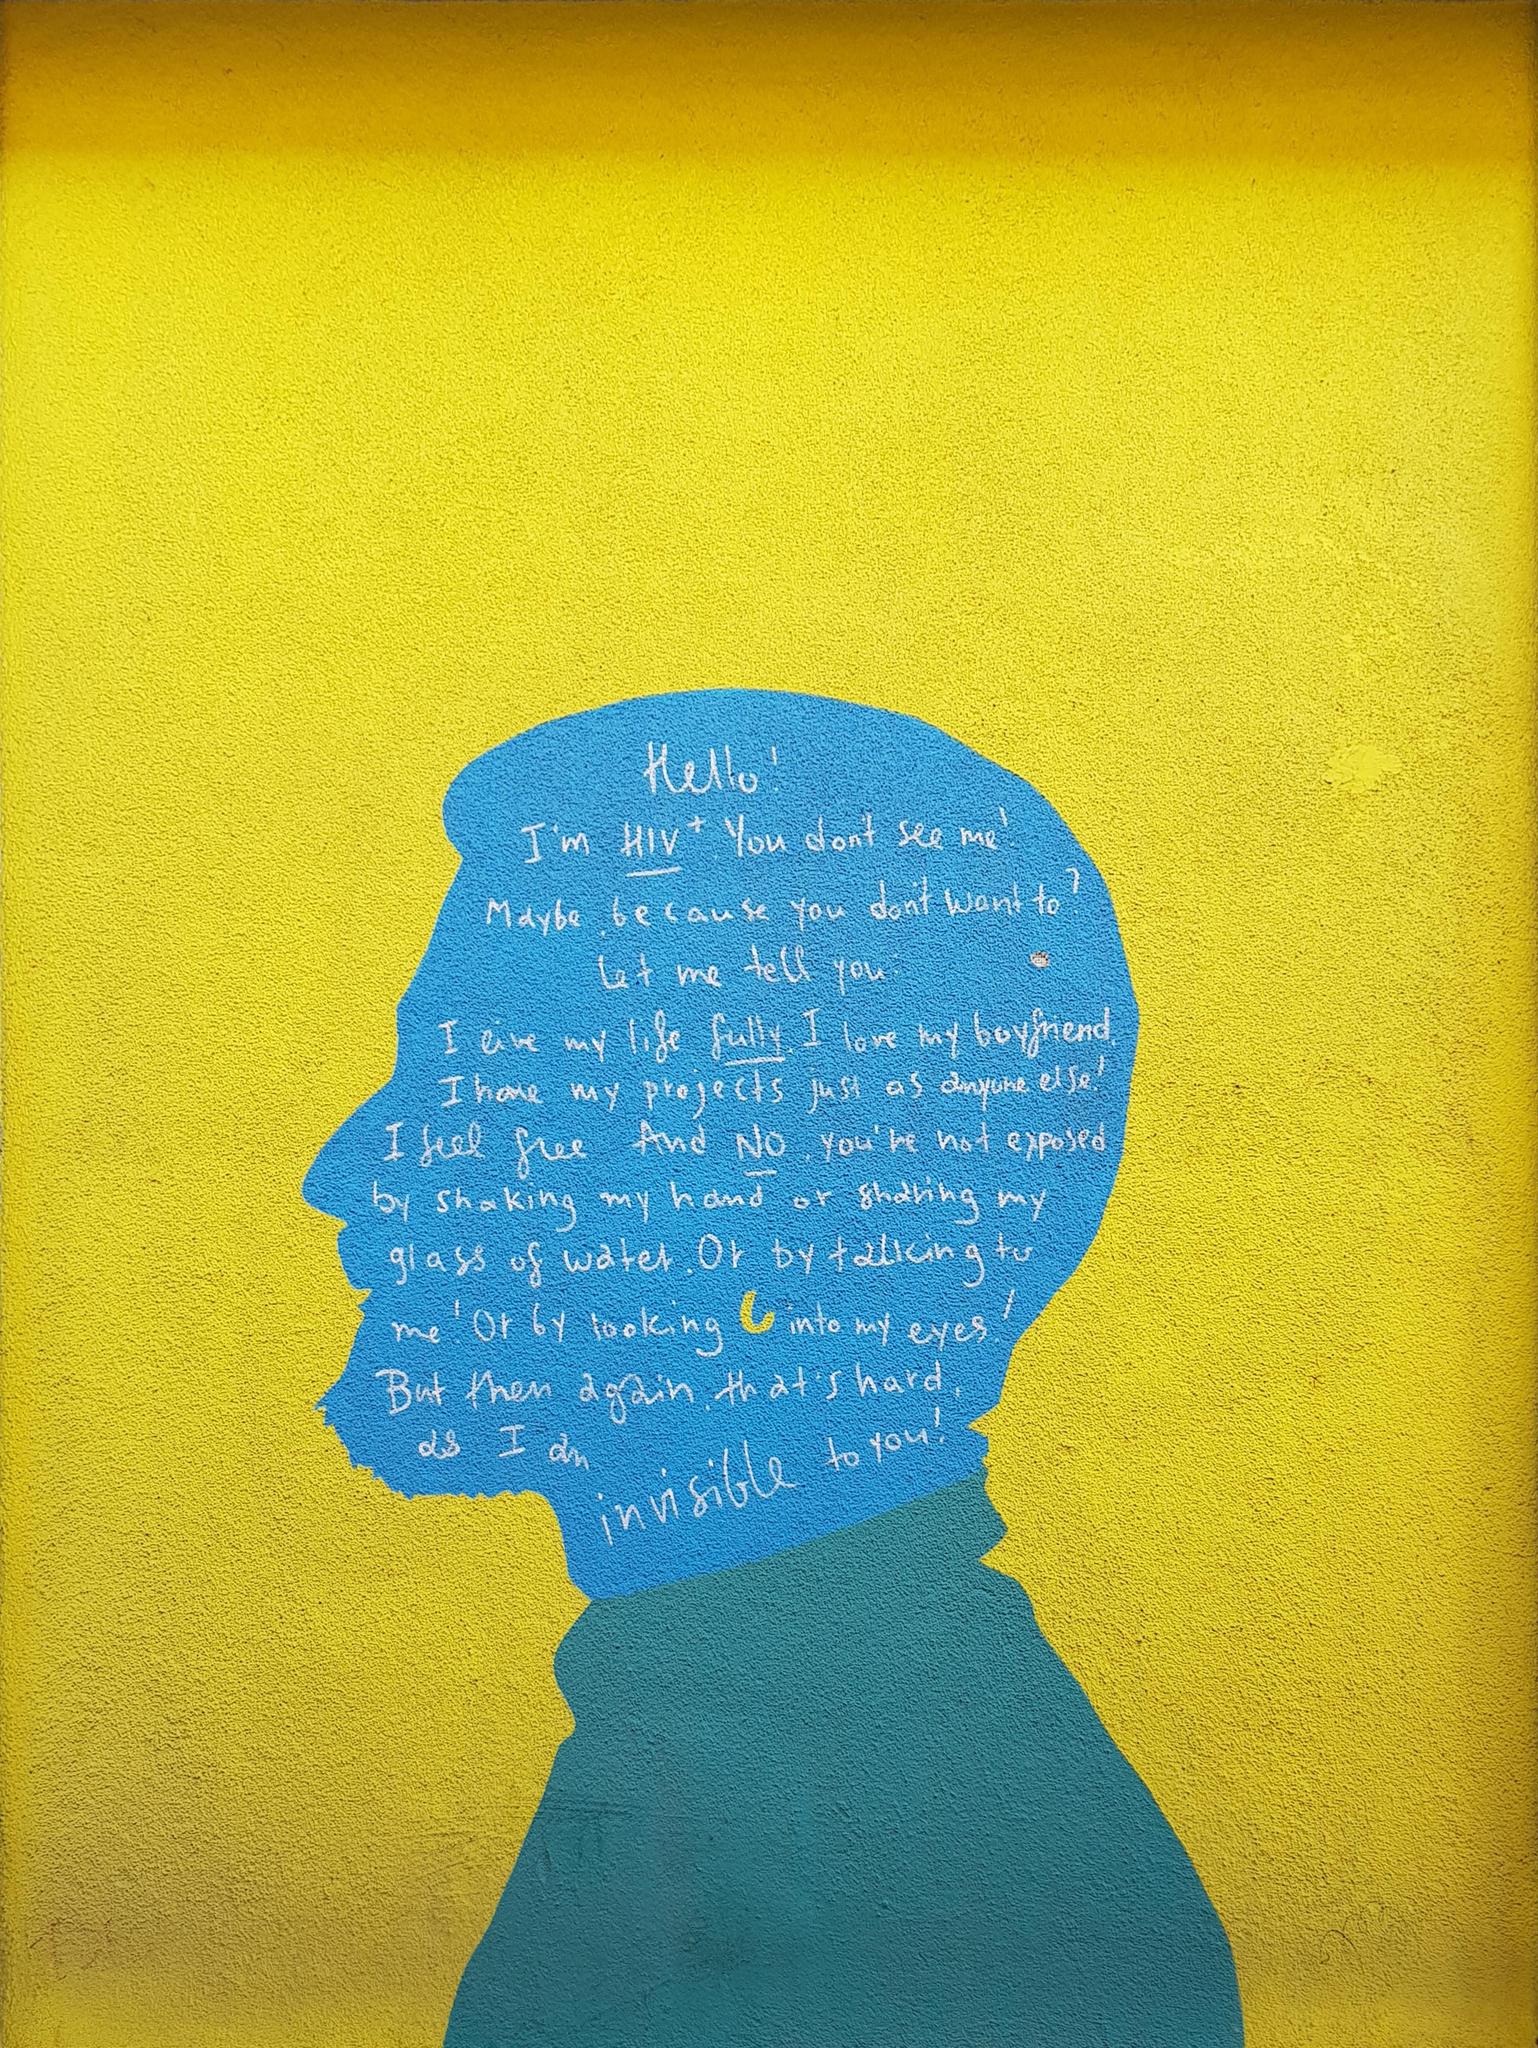 Hello!
I'm HIV+. You don't see me!
Maybe because you don't want to?
Let me tell you:
I live my life fully. I love my boyfriend.
I have my projects just as anyone else!
I feel free And NO, you're not exposed
by shaking my hand or sharing my
glass of water. Or by talking to
me! Or by looking into my eyes!
But then again, that's hard,
as I am
invisible to you!